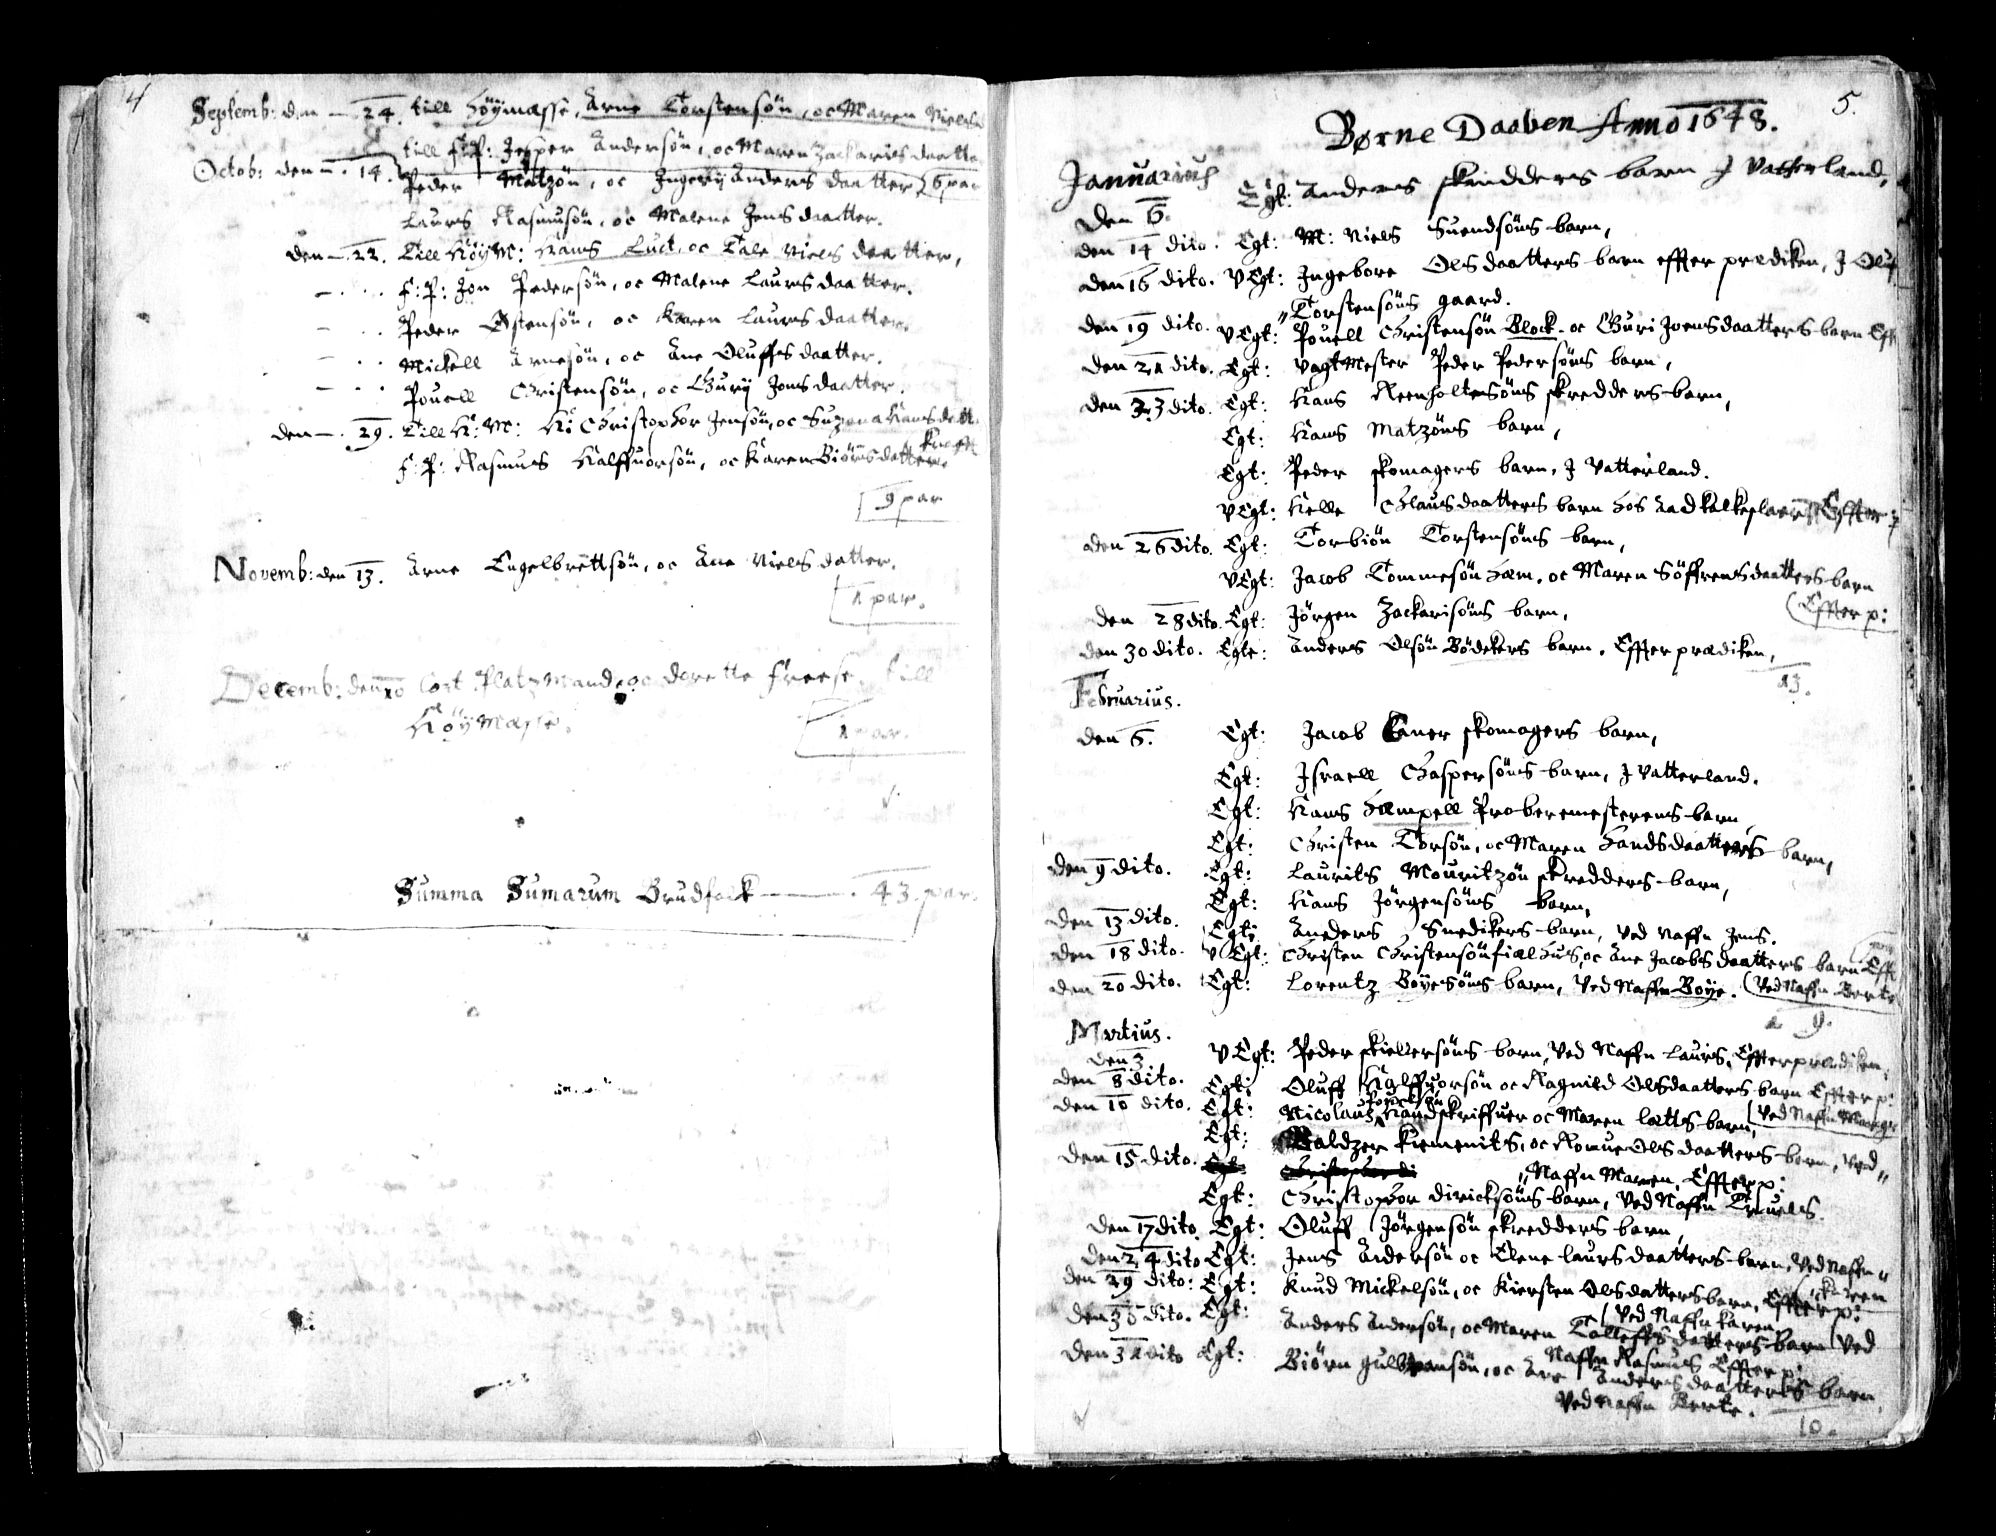 4
Septemb: den 24. till Höymæsse, Arne Torstensön, oc Maren Niels
till F: P: Jesper Andersön, oc Maren Zackaris daatter
Octob: den 14. Peder Matzön, oc Ingerij Anders daatter 6 par
Laurs Rasmusön, oc Malene Jens daatter.
den 22. Till Höy M: Hans Luct, oc Tale Niels daatter,
F: P: Jon Pedersön, oc Malene Laurs daatter.
Peder Östensön, oc Karen Laurs daatter
Mickell Arnesön, oc Ane Oluffs daatter.
Pouell Christensön, oc Gurij Jons daatter.
den 29. Till H: M: H: Christopher Jensön, oc Suzana Hans
F: P: Rasmus Halffuorsön, oc Karen Biörns datter.
9 par
Novemb: den 13. Arne Engelbrettsön, oc Ane Niels datter.
1 par.
Decemb: den 10 Cort Platzmand, oc Dorette Freese, till
Höymæsse.
1 par.
Summa Sumarum Brudfolck 43. par.
5.
Børne Daaben Anno 1648.
Januarius
Den 6. Egt: Anders skredders barn J Vatterland,
den 14 dito. Egt: M: Niels Suendsöns barn,
den 16 dito. V Egt: Ingebore Ols daatters barn effter prædiken, J Oluf
Torstensöns gaard.
den 19 dito. V Egt: Pouell Christensön Block oc Guri Joensdaatters barn Eff
den 21 dito. Egt: VagtMester Peder Pedersöns barn,
den 23 dito. Egt: Hans Reenholtesöns skredders barn,
Egt: Hans Matzöns barn,
Egt: Peder skomagers barn, J Vatterland.
V Egt: Helle Clausdaatters barn hos Aad Effter p
den 26 dito. Egt: Torbiön Torstensöns barn,
V Egt: Jacob Tommesön Ham, oc Maren Söffrensdaatters barn
Effter p:
den 28 dito. Egt: Jörgen Zackarisöns barn,
den 30 dito. Egte: Anders Olsön Bödekers barn, Effter prædiken,
13.
Februarius.
den 6. Egt: Jacob skomagers barn,
Egt: Israell Caspersöns barn, J Vatterland.
Egt: Hans Hampell Proberemesterens barn
Egt: Christen Torsön, oc Maren Handsdaatters barn,
den 9 dito. Egt: Laurits Mouritzön skredders barn,
Egt: Hans Jörgensöns barn,
den 13 dito. Egt: Anders Snedikers barn, Ved Naffn Jens.
den 18 dito. V Egt: Christen Christensön, oc Ane Jacobs daatters barn Eff
den 20 dito. Egt: Lorentz Boyesöns barn, Ved Naffn Boye. Ved Naffn Berte
9.
Martius.
den 3. V Egt: Peder skiellersöns barn, Ved Naffn Laurs, Effter prædiken.
den 8 dito. Egt: Oluff Halffuorsön oc Ragnild Olsdaatters barn Effter p:
den 10 dito. Egt: Nicolaus Handskriffuer oc Maren Latts barn, Ved Naffn
Egt: Baldzer oc Olsdaatters barn, Ved
den 15 dito. Naffn Maren, Effter p:
Egt: Christopher Diricksöns barn, Ved Naffn Truels.
den 17 dito. Egt: Oluff Jörgensön skredders barn,
den 24 dito Egt: Jens Andersön oc Elene Laurs daatters barn, Ved Naffn
Karen
den 29 dito: Egt: Knud Mickelsön, oc Kiersten Olsdatters barn, Effter p:
Ved Naffn Karen
den 30 dito. Egt: Anders Andersön, oc Maren datters barn Ved
Naffn Rasmus Effter p:
den 31 dito Egt: Biörn Gulbransön, oc Ane Anders daatters barn,
Ved Naffn Berte.
10.